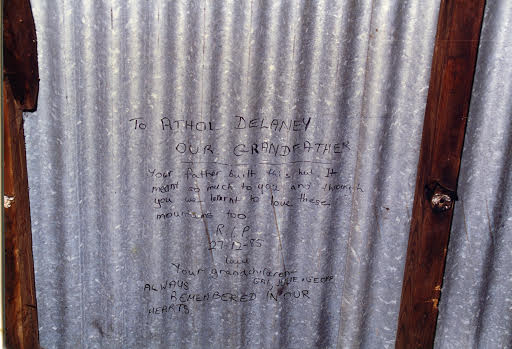 TO ATHOL DELANEY
OUR GRANDFATHER
Your father built this hut. It
meant so much to you and through
you we learnt to love these
mountains too
R.I.P
27-12-85
Love
Your grandchildren
JULIE
ALWAYS
REMEMBERED IN OUR
HEARTS